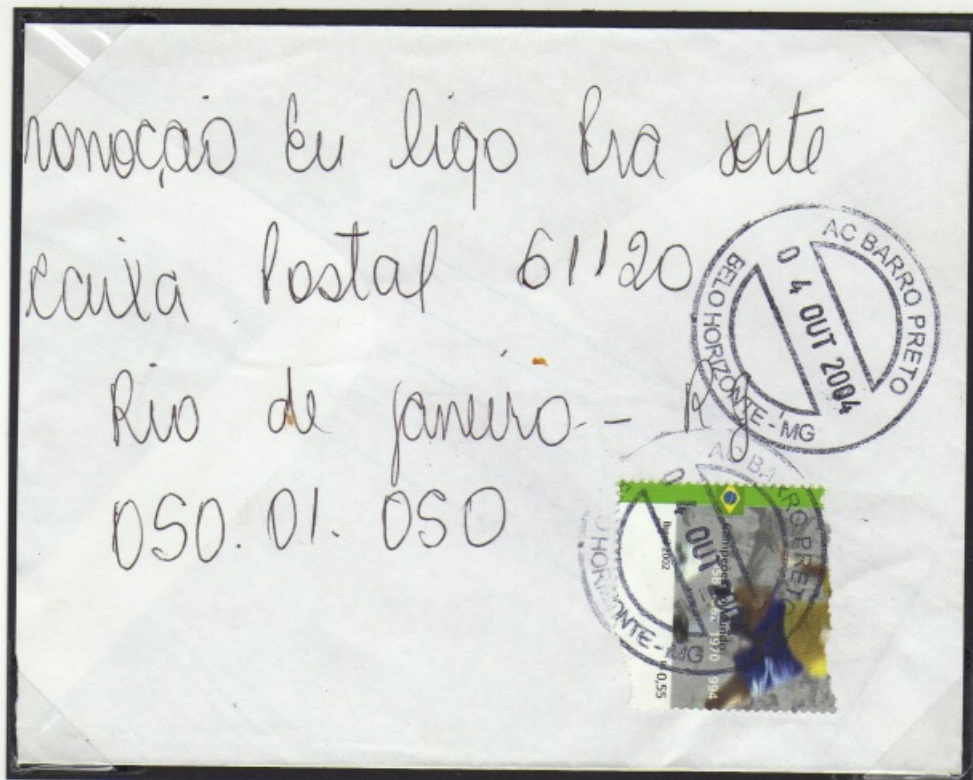 romoção Eu ligo Pra sorte
Caixa Postal 61120
Rio de janeiro - RJ
050.01.050
AC BARRO PRETO
04 OUT 2004
BELO HORIZONTE - MG
AC BARRO PRETO
04 OUT
O HORIZONTE - MG
Brasil 2002
1970 1994
0,55